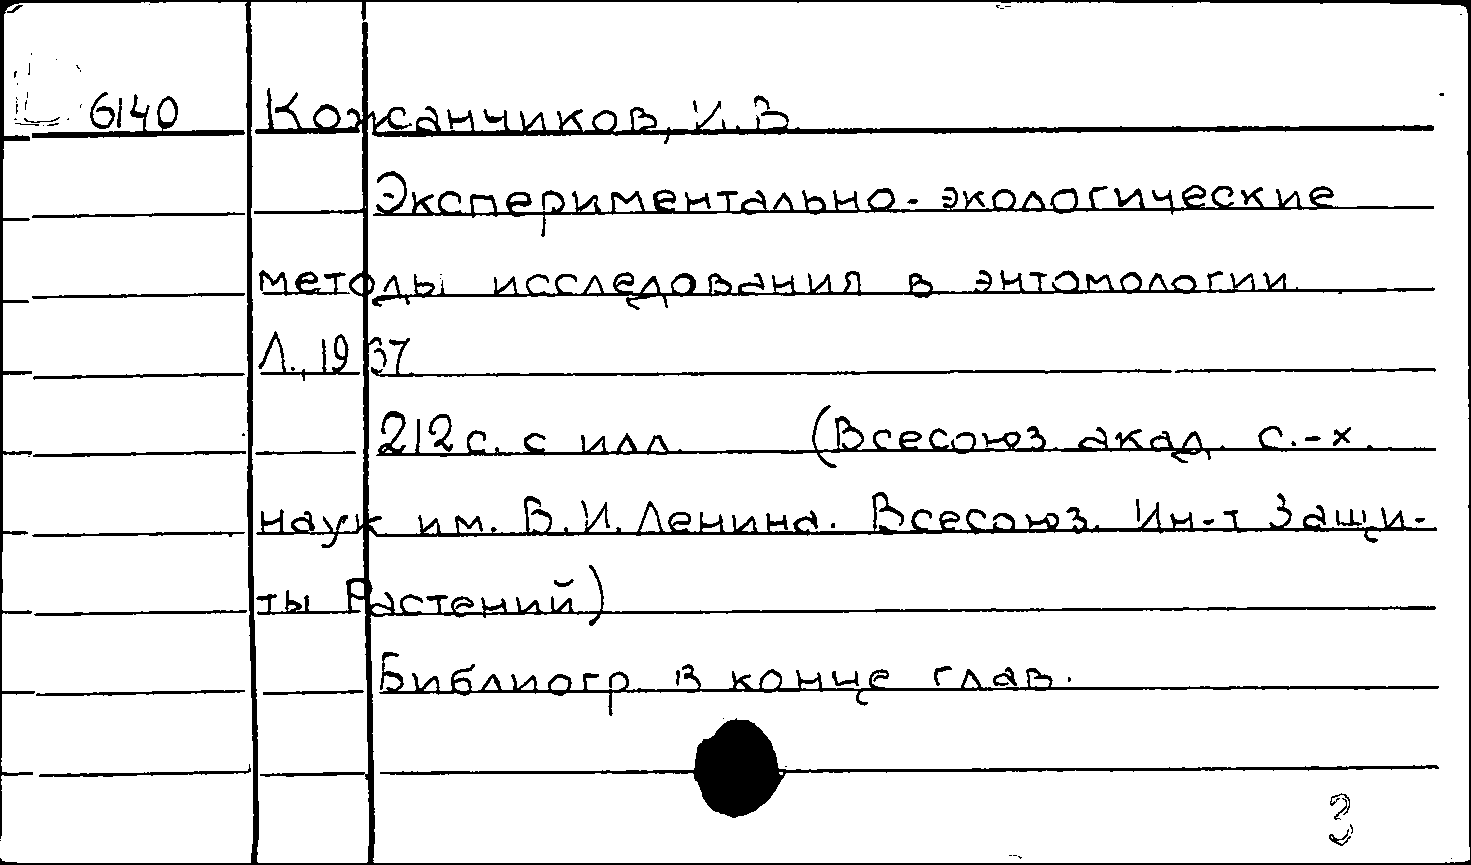 6140 Кожанчиков, И. В.
Экспериментально-экологические
методы исследования в энтомологии
Л., 1937
212 с. с илл. (Всесоюз. акад. с.-х.
наук им. В.И. Ленина. Всесоюз. Ин-т Защи-
ты Растений)
Библиогр. в конце глав.
3